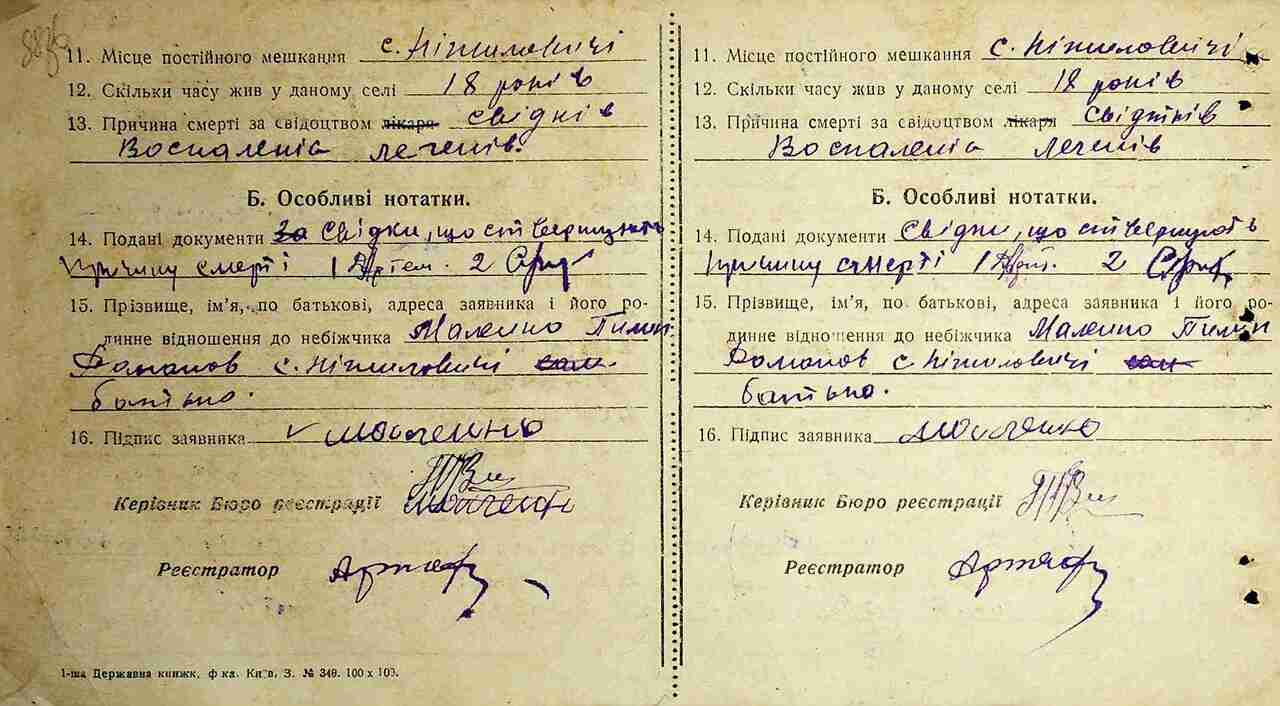 11. Місце постійного мешкання с. Ніжиловичі
12. Скільки часу жив у даному селі 18 років
13. Причина смерті за свідоцтвом лікаря свідків
Воспаленія легенів.
Б. Особливі нотатки.
14. Подані документи За свідки, що стверджують
причину смерті 1 2
15. Прізвище, ім'я, по батькові, адреса заявника і його ро-
динне відношення до небіжчика Маленко Пилип
Романов с. Ніжиловичі сам
батько.
16. Підпис заявника
Керівник Бюро реєстрації
Реєстратор
1-ша Державна книжк. ф-ка. Київ, З. № 340. 100 x 100.
11. Місце постійного мешкання с. Ніжиловичі
12. Скільки часу жив у даному селі 18 років
13. Причина смерті за свідоцтвом лікаря свідків
Воспаленія легенів
Б. Особливі нотатки.
14. Подані документи Свідки, що стверджують
причину смерті 1 2
15. Прізвище, ім'я, по батькові, адреса заявника і його ро-
динне відношення до небіжчика Маленко Пилип
Романов с. Ніжиловичі сам
батько.
16. Підпис заявника
Керівник Бюро реєстрації
Реєстратор